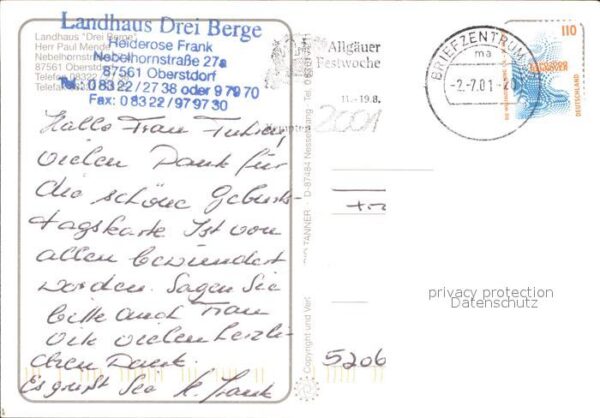 Landhaus Drei Berge
Heiderose Frank
Nebelhornstraße 27a
87561 Oberstdorf
Tel.: 0 83 22 / 27 38 oder 9 79 70
Fax: 0 83 22 / 97 97 30
Landhaus "Drei Berge"
Herr Paul Mende
Nebelhornstr
87561 Oberst
Telefon
Telefax
Hallo Frau
vielen Dank für
die schöne Geburts-
tagskarte Ist von
allen bewundert
worden. Sagen Sie
bitte auch Frau
vielen herzli-
chen Dank.
Es grüßt Sie H. Frank
Allgäuer
Festwoche
11.-19.8.
Kempten
2001
BRIEFZENTRUM
ma
-2.-7.01-20
110
DEUTSCHLAND
TANNER · D-87484 Nesselwang · Tel.
Copyright und Ver
privacy protection
Datenschutz
5206